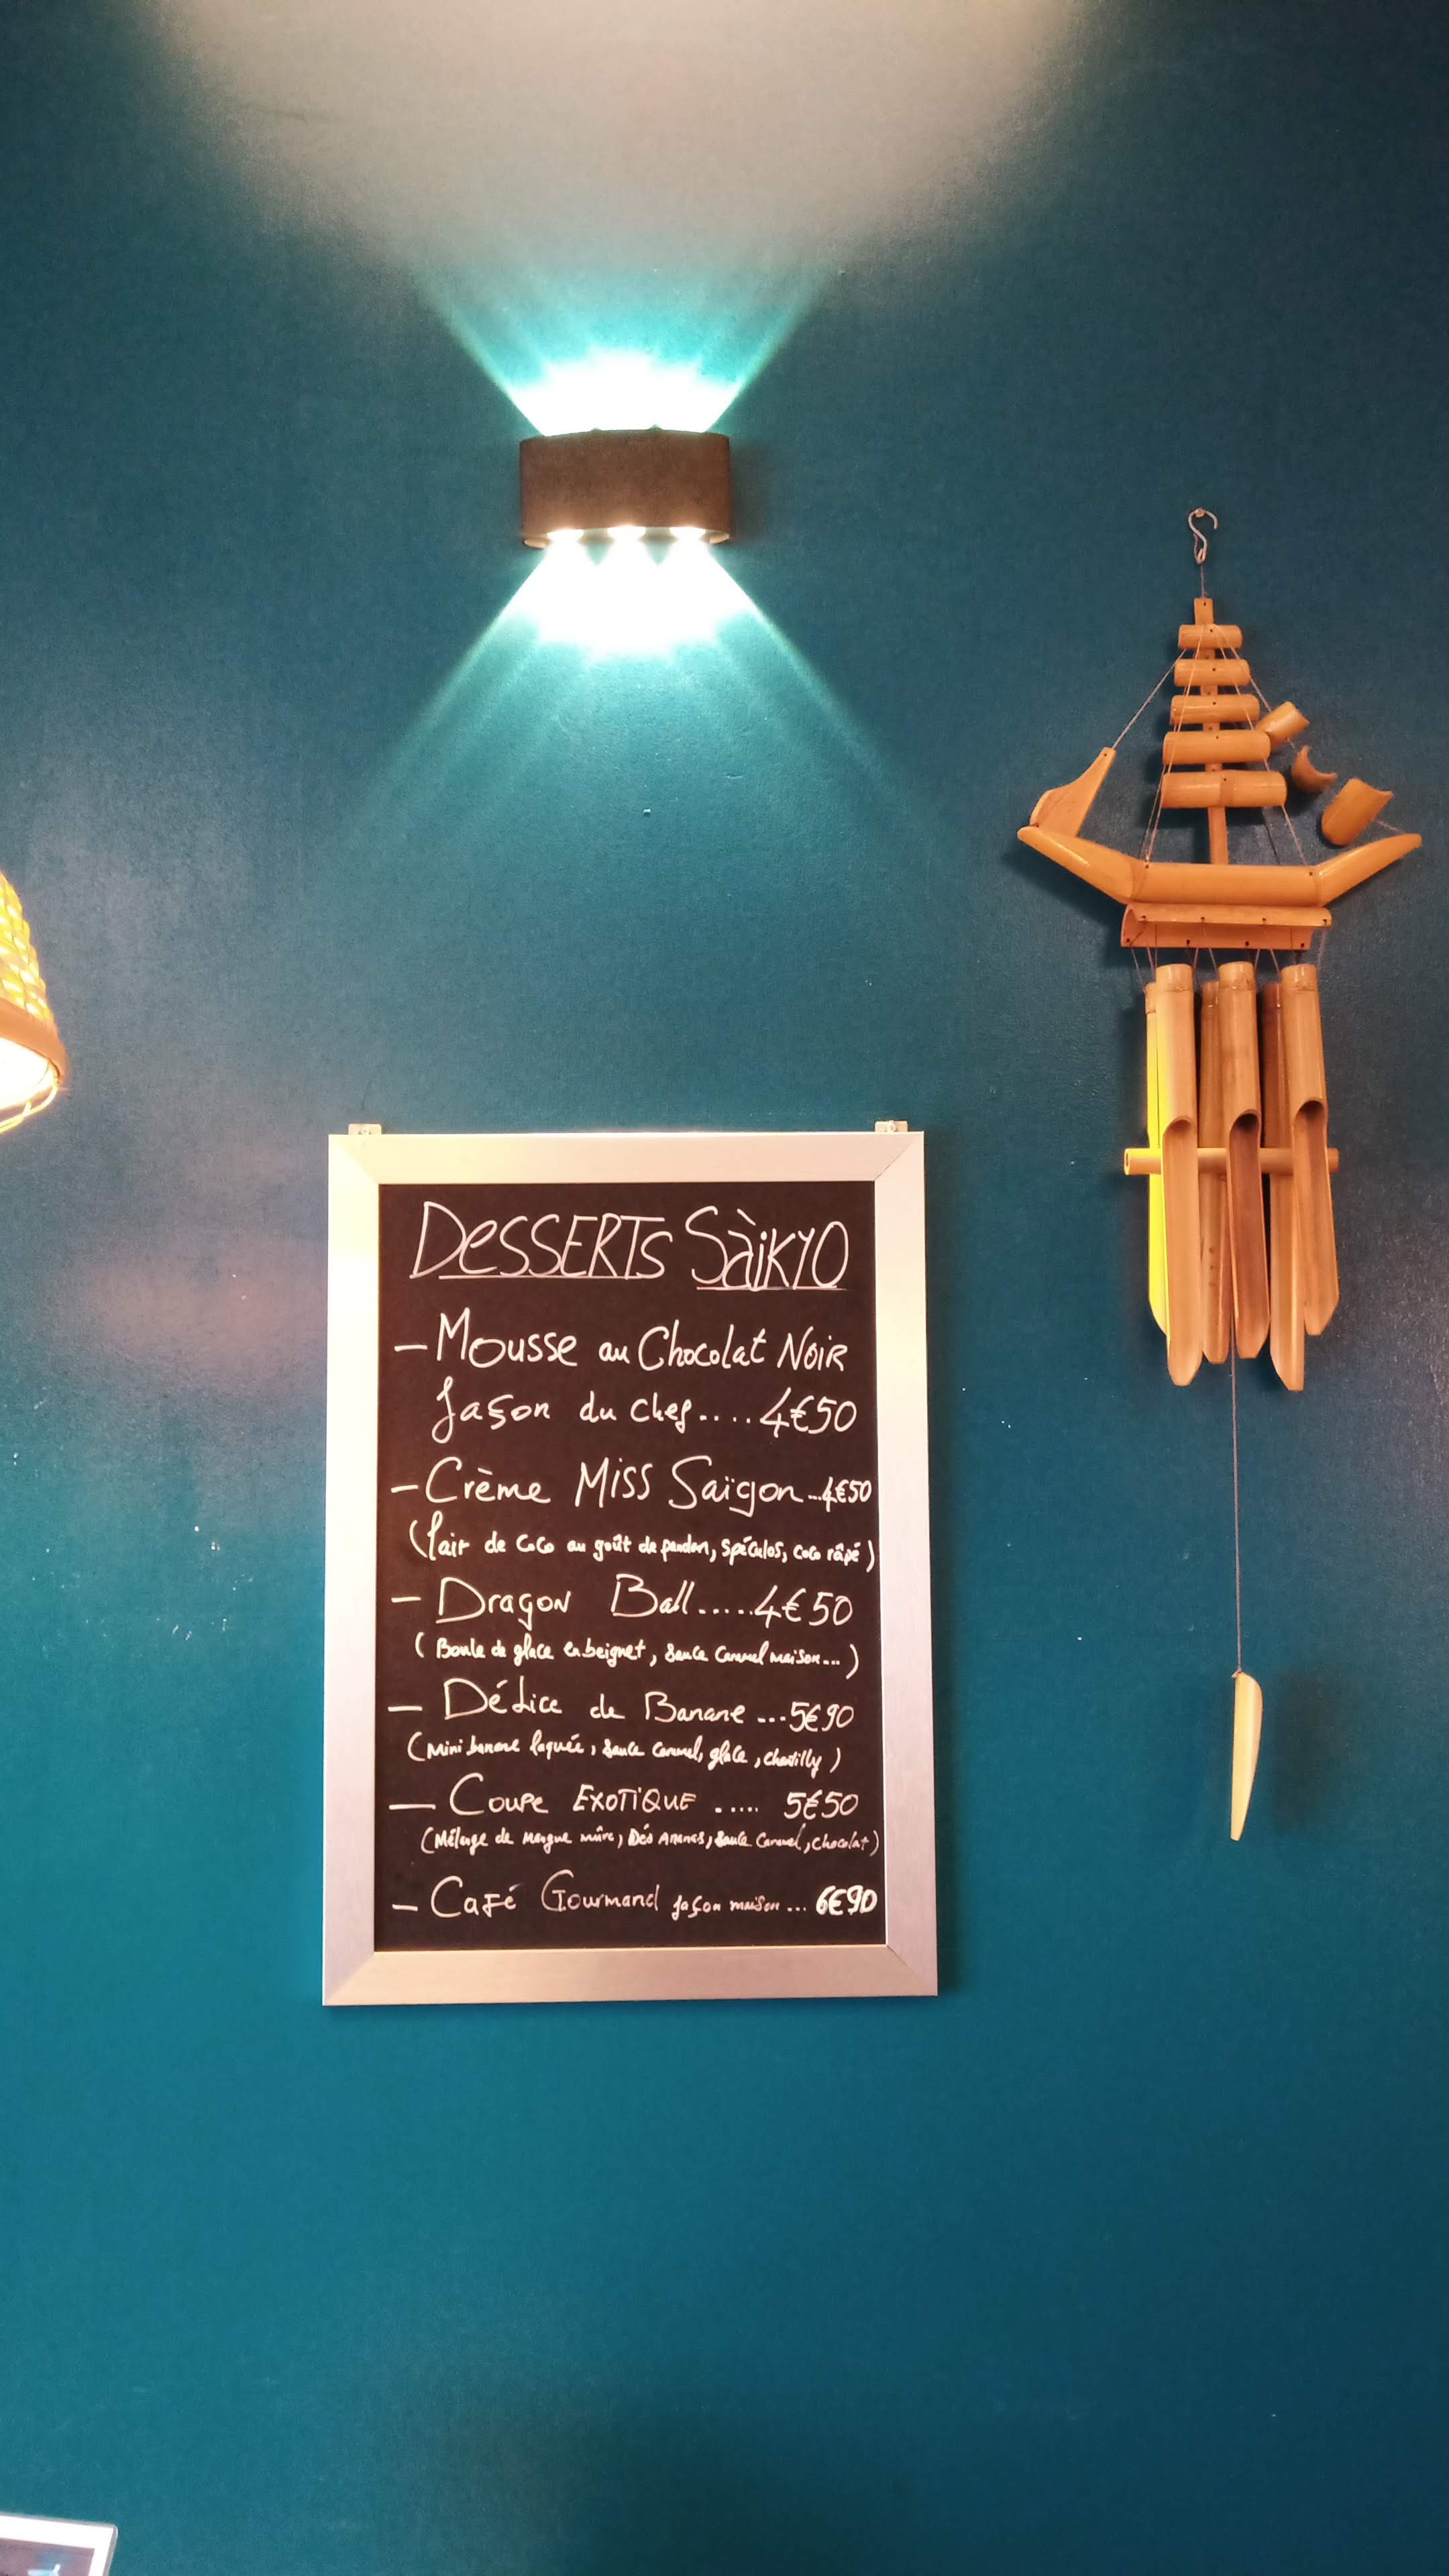 DESSERTS SàiKYO
- Mousse au Chocolat Noir
façon du chef.... 4€50
- Crème Miss Saïgon...4€50
(Flair de coco au goût de pandan, spéculos, coco râpé)
- Dragon Ball.....4€50
(Boule de glace en beignet, sauce caramel maison...)
- Délice de Banane ...5€90
(Mini banane laquée, sauce caramel, glace, chantilly)
- Coupe EXOTIQUE ..... 5€50
(Mélange de mangue mûre, Dés Ananas, sauce caramel, chocolat)
- Café Gourmand façon maison... 6€90